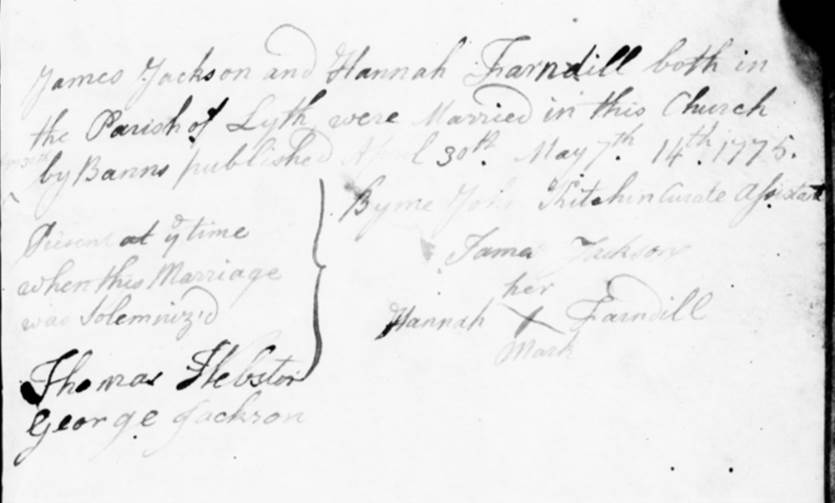 James Jackson and Hannah Farndill both in
the Parish of Lyth were Married in this Church
by Banns published April 30th. May 7th. 14th. 1775.
By me John Kitchin Curate Assistant
Present at ye time
when this Marriage
was Solemniz'd
James Jackson
her
Hannah X Farndill
Mark
Thomas
George Jackson